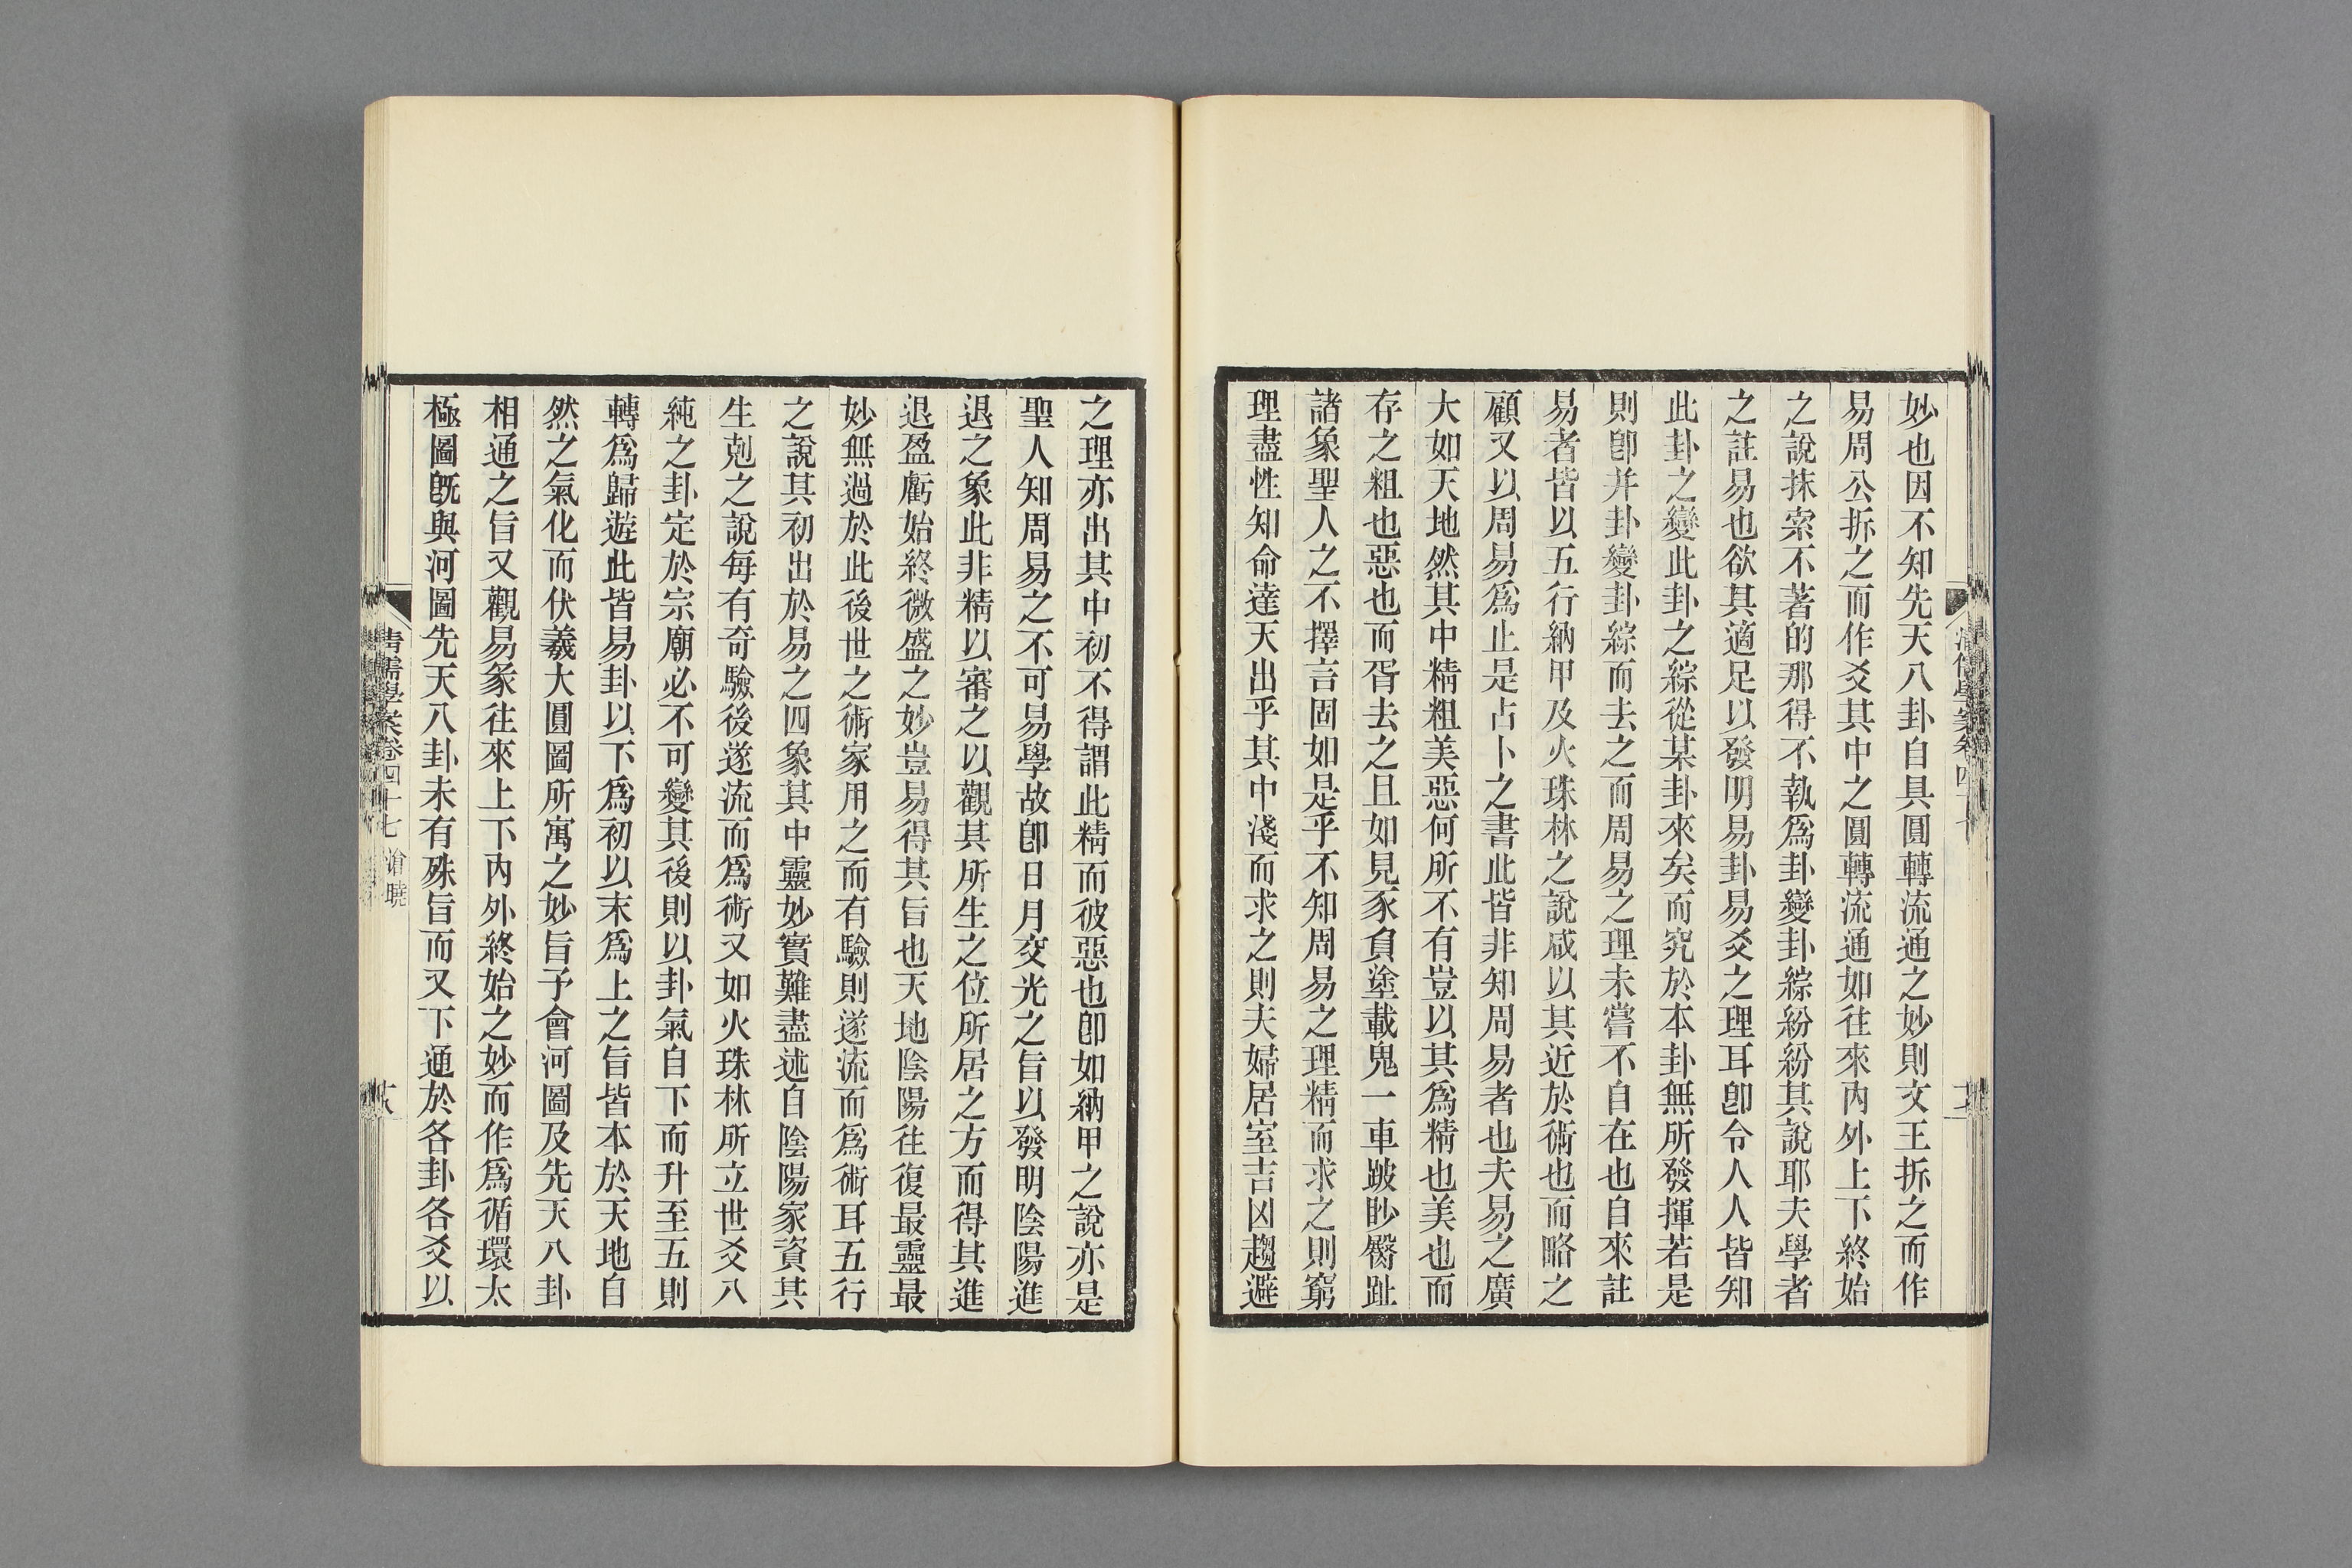 妙也因不知先天八卦自具圓轉流通之妙則文王拆之而作
易周公拆之而作爻其中之圓轉流通如往來內外上下終始
之說抹索不著的那得不執爲卦變卦綜紛紛其說耶夫學者
之註易也欲其適足以發明易卦易爻之理耳卽令人人皆知
此卦之變此卦之綜從某卦來矣而究於本卦無所發揮若是
則卽并卦變卦綜而去之而周易之理未嘗不自在也自來註
易者皆以五行納甲及火珠林之說咸以其近於術也而略之
顧又以周易爲止是占卜之書此皆非知周易者也夫易之廣
大如天地然其中精粗美惡何所不有豈以其爲精也美也而
存之粗也惡也而胥去之且如見豕負塗載鬼一車跛眇臀趾
諸象聖人之不擇言固如是乎不知周易之理精而求之則窮
理盡性知命達天出乎其中淺而求之則夫婦居室吉凶趨避
之理亦出其中初不得謂此精而彼惡也卽如納甲之說亦是
聖人知周易之不可易學故卽日月交光之旨以發明陰陽進
退之象此非精以審之以觀其所生之位所居之方而得其進
退盈虧始終微盛之妙豈易得其旨也天地陰陽往復最靈最
妙無過於此後世之術家用之而有驗則遂流而爲術耳五行
之說其初出於易之四象其中靈妙實難盡述自陰陽家資其
生剋之說每有奇驗後遂流而爲術又如火珠林所立世爻八
純之卦定於宗廟必不可變其後則以卦氣自下而升至五則
轉爲歸遊此皆易卦以下爲初以末爲上之旨皆本於天地自
然之氣化而伏羲大圓圖所寓之妙旨予會河圖及先天八卦
相通之旨又觀易彖往來上下內外終始之妙而作爲循環太
極圖旣與河圖先天八卦未有殊旨而又下通於各卦各爻以
清儒學案卷四十七 滄曉